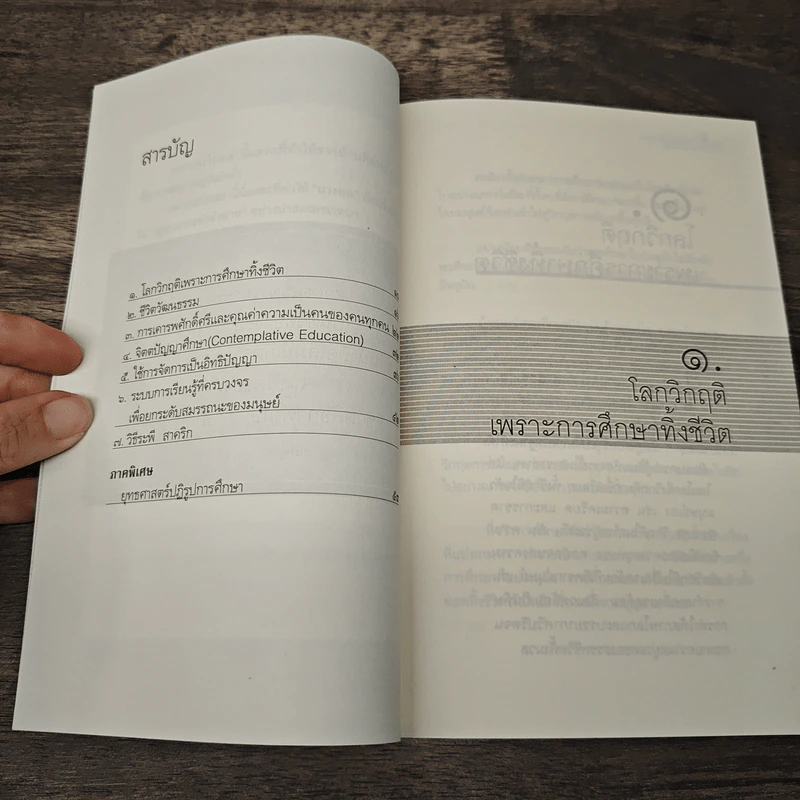 สารบัญ
๑. โลกวิกฤติเพราะการศึกษาทิ้งชีวิต
๒. ชีวิตวัฒนธรรม
๓. การเคารพศักดิ์ศรีและคุณค่าความเป็นคนของคนทุกคน
๔. จิตตปัญญาศึกษา(Contemplative Education)
๕. ใช้การจัดการเป็นอิทธิปัญญา
๖. ระบบการเรียนรู้ที่ครบวงจร
เพื่อยกระดับสมรรถนะของมนุษย์
๗. วิธีระพี สาคริก
ภาคพิเศษ
ยุทธศาสตร์ปฏิรูปการศึกษา
๑.
โลกวิกฤติ
เพราะการศึกษาทิ้งชีวิต